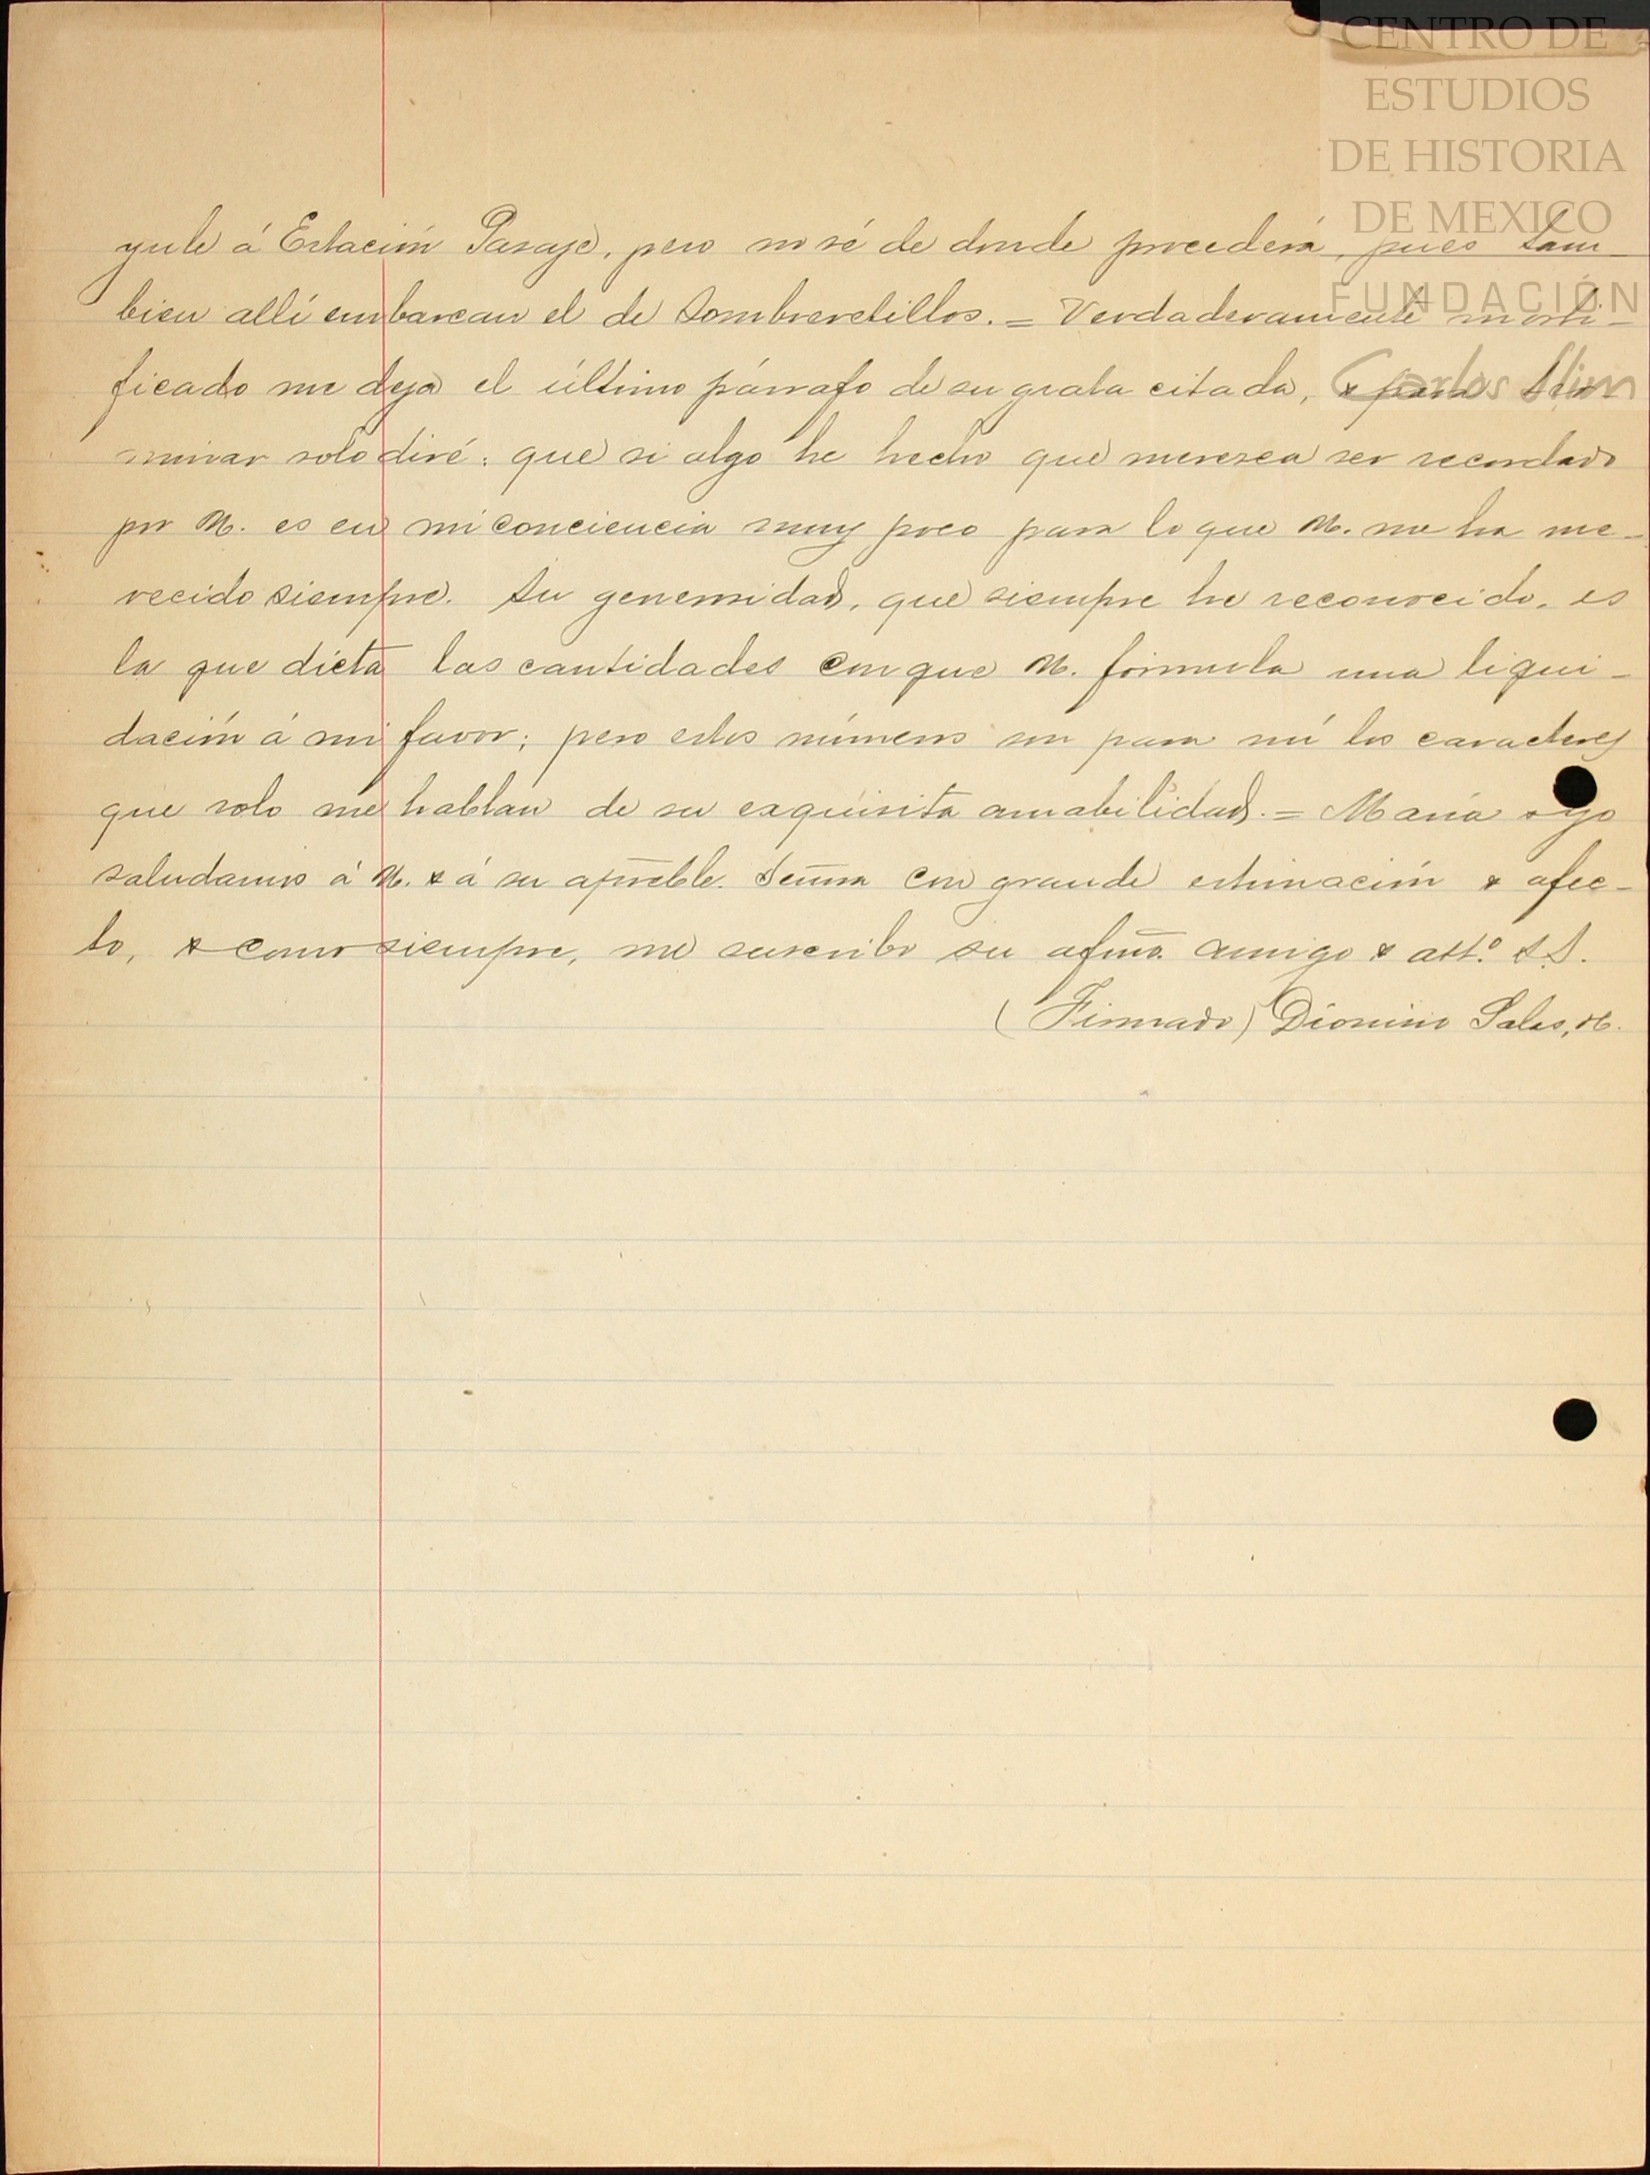 CENTRO DE
ESTUDIOS
DE HISTORIA
DE MEXICO
FUNDACIÓN
Carlos Slim
yule á Estación Pasaje, pero no sé de donde procederá, pues tam-
bien allí embarcan el de Sombreretillos. = Verdaderamente morti-
ficado me deja el último párrafo de su grata citada, & para ter-
minar solo diré: que si algo he hecho que meresca ser recordado
por U. es en mi conciencia muy poco para lo que U. me ha me-
recido siempre. Su generosidad, que siempre he reconocido, es
la que dicta las cantidades con que U. formula una liqui-
dación á mi favor; pero estos números son para mí los caracteres
que solo me hablan de su exquisita amabilidad. = María & yo
saludamos á U. & á su apreble. Señora con grande estimación & afec-
to, & como siempre, me suscribo su afmo. amigo & att.º S.S.
(Firmado) Dionisio Salas, H.